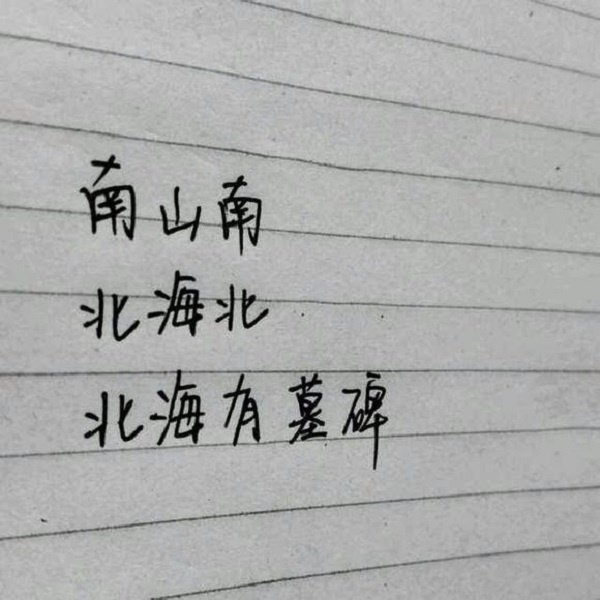 南山南
北海北
北海有墓碑